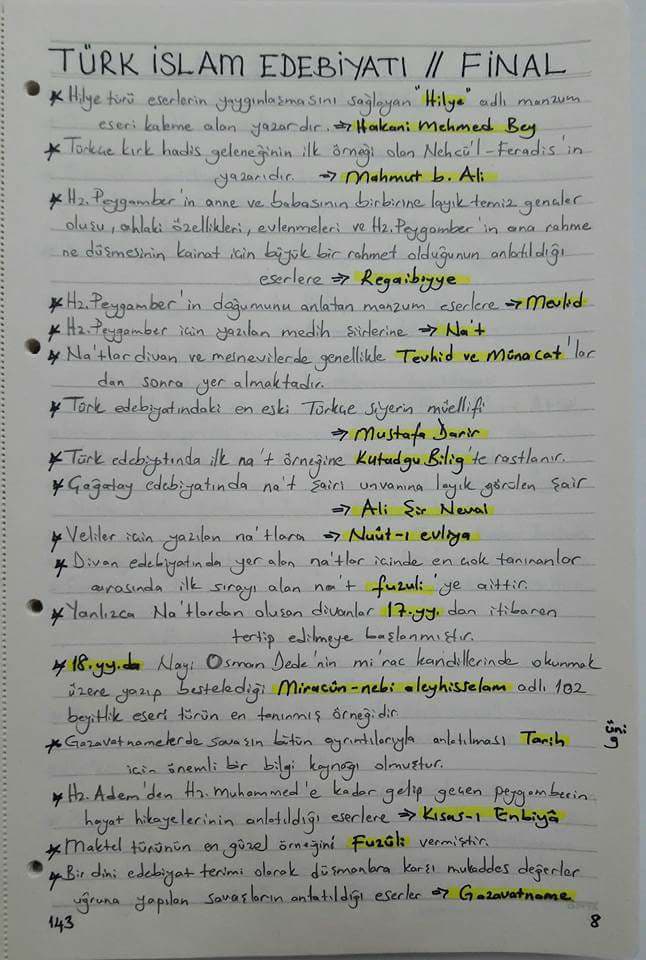 TÜRK İSLAM EDEBİYATI // FİNAL
* Hilye türü eserlerin yaygınlaşmasını sağlayan "Hilye" adlı manzum
eseri kaleme alan yazardır. ⇒ Hakani Mehmed Bey
* Türkçe kırk hadis geleneğinin ilk örneği olan Nehcü'l-Feradis'in
yazarıdır. ⇒ Mahmut b. Ali
* Hz. Peygamber'in anne ve babasının birbirine layık temiz gençler
oluşu, ahlaki özellikleri, evlenmeleri ve Hz. Peygamber'in ana rahme
ne düşmesinin kainat için büyük bir rahmet olduğunun anlatıldığı
eserlere ⇒ Regaibiyye
* Hz. Peygamber'in doğumunu anlatan manzum eserlere ⇒ Mevlid
* Hz. Peygamber için yazılan medih şiirlerine ⇒ Na't
* Na'tlar divan ve mesnevilerde genellikle Tevhid ve Münacat'lar
dan sonra yer almaktadır.
* Türk edebiyatındaki en eski Türkçe siyerin müellifi
⇒ Mustafa Darir
* Türk edebiyatında ilk na't örneğine Kutadgu Bilig'te rastlanır.
* Çağatay edebiyatında na't şairi unvanına layık görülen şair
⇒ Ali Şir Nevai
* Veliler için yazılan na'tlara ⇒ Nuût-ı evliya
* Divan edebiyatında yer alan na'tlar içinde en çok tanınanlar
arasında ilk sırayı alan na't fuzuli'ye aittir.
* Yanlızca Na'tlardan oluşan divanlar 17.yy. dan itibaren
tertip edilmeye başlanmıştır.
* 18.yy.da Nayi Osman Dede'nin mi'rac kandillerinde okunmak
üzere yazıp bestelediği Miracün-nebi aleyhisselam adlı 102
beyitlik eseri türün en tanınmış örneğidir.
* Gazavatnamelerde savaşın bütün ayrıntılarıyla anlatılması Tarih
için önemli bir bilgi kaynağı olmuştur.
üni
9
* Hz. Adem'den Hz. Muhammed'e kadar gelip geçen peygamberin
hayat hikayelerinin anlatıldığı eserlere ⇒ Kısas-ı Enbiyâ
* Maktel türünün en güzel örneğini Fuzûli vermiştir.
* Bir dini edebiyat terimi olarak düşmanlara karşı mukaddes değerler
uğruna yapılan savaşların anlatıldığı eserler ⇒ Gazavatname
143
8